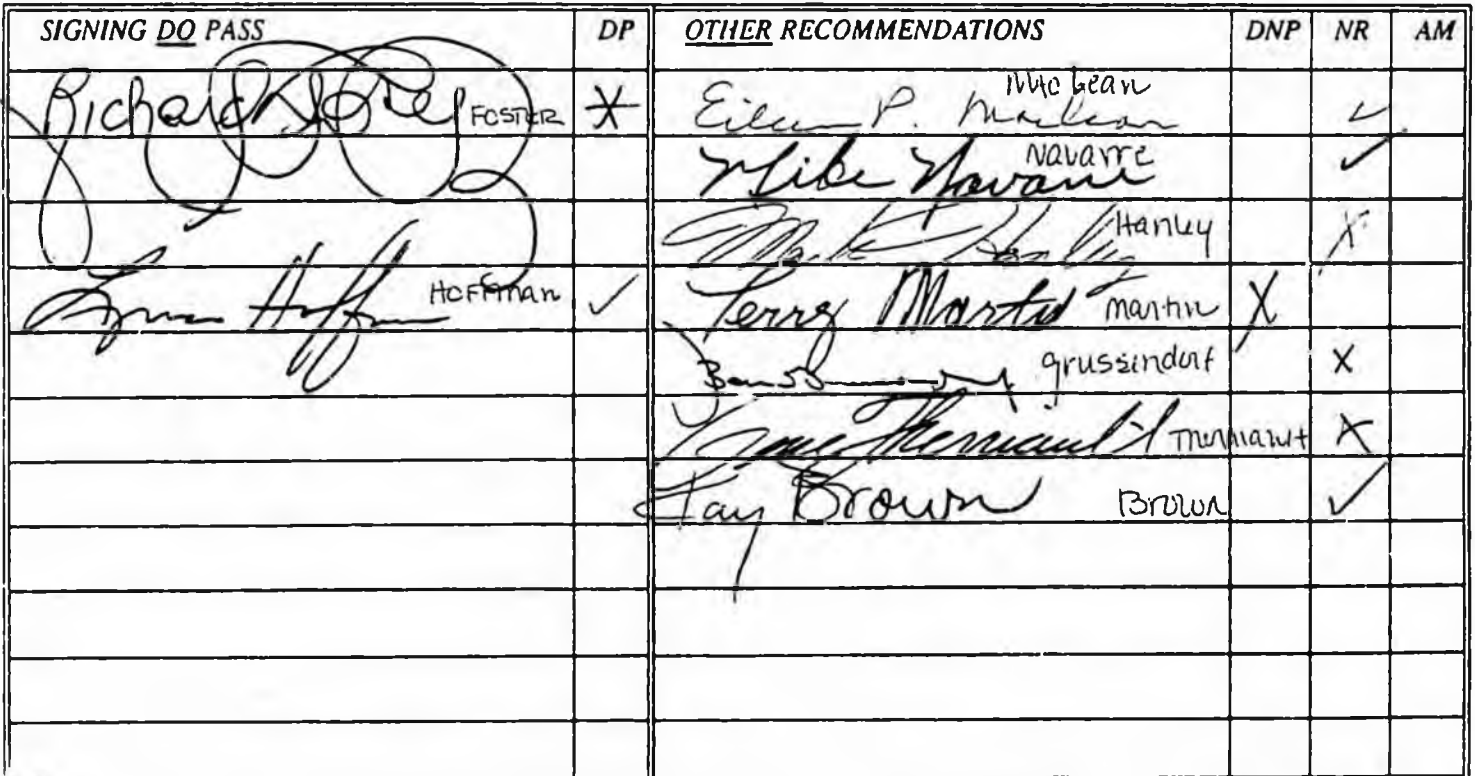 SIGNING DO PASS DP OTHER RECOMMENDATIONS DNP NR AM
Richard Foster FOSTER X Eileen P. MacLean MacLean ✓
Mike Navarre Navarre ✓
Mark Hanley Hanley X
Hoffman Hoffman ✓ Terry Martin Martin X
grussindorf X
Therriault Therriault X
Kay Brown Brown ✓